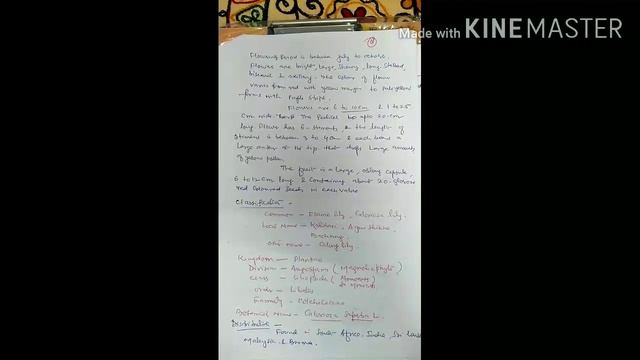 Made with KINEMASTER
Flowering Period is between July to october.
Flowers are bright, Large, Showy, Long Stalked,
bisexual & solitary. The colour of flower
varies from red with yellow margin to Pale yellow
forms with Purple Stripe.
Flowers are 6 to 10cm & 1 to 2.5
cm wide. The Pedicel be upto 20 cm
long. Flower has 6 stamens & the length of
Stamens is between 3 to 4 cm & each
Large anther at the tip that drops Large amounts
of yellow pollen.
The fruit is a large, oblong capsule,
6 to 12 cm long & containing about 20 globose
red coloured Seeds in each valve
Classification -
Common - Flame lily, Gloriosa lily.
Local Name - Kalihari, Agni shikha,
Kingdom - Plantae
Division - (Magnoliophyta)
Class - Liliopsida (Monocots)
Order - Liliales
Family - Colchicaceae
Botanical Name - Gloriosa Superba L.
Distribution -
Found in South Africa, India, Sri Lanka
Malaysia & Burma.